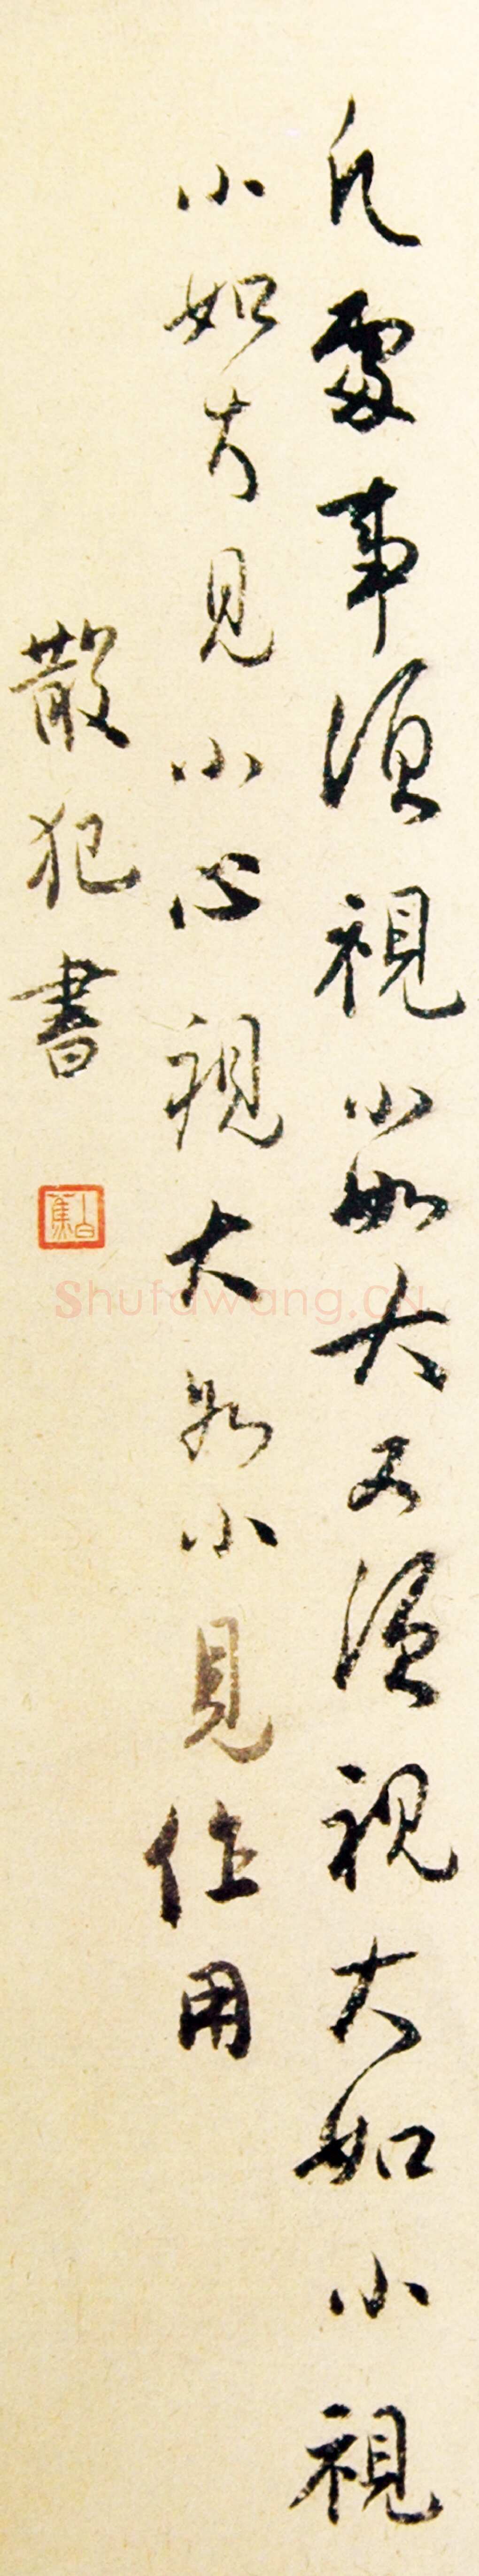 凡處事須視小如大又須視大如小視
小如大見小心視大如小見作用
散犯書
白蕉
Shufawang.cn